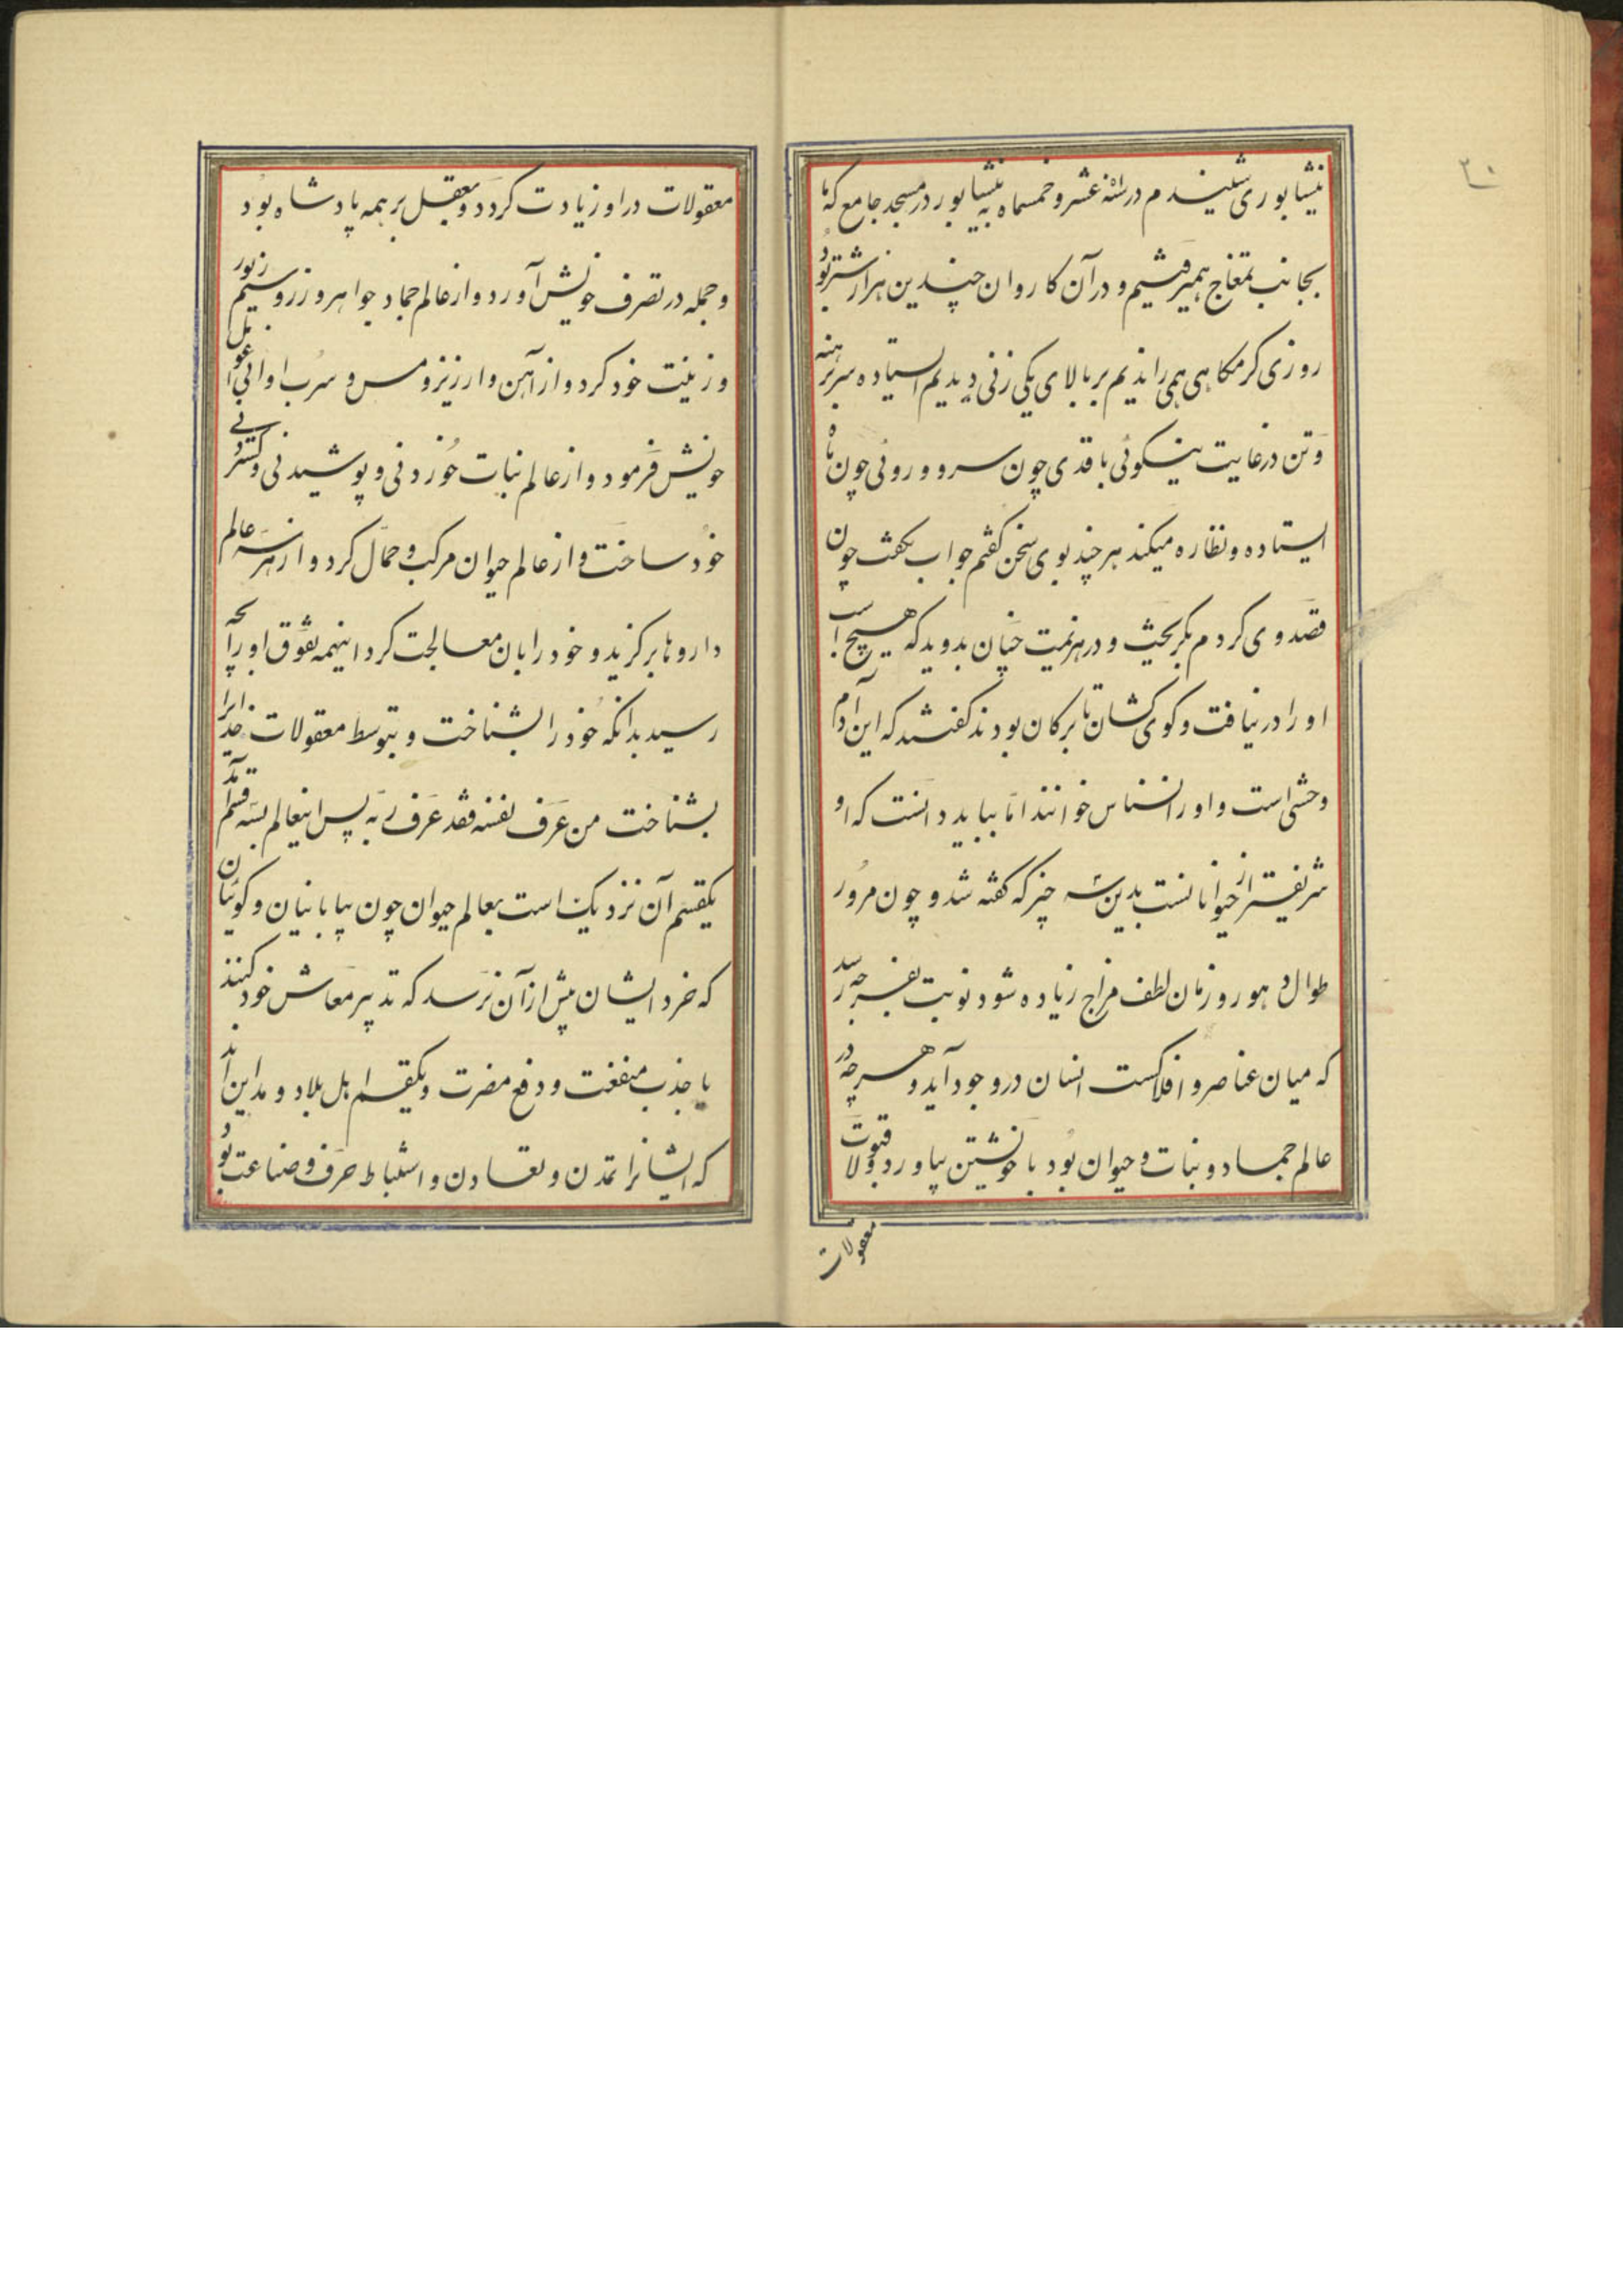 ۳۰
نیشابوری شنیدم در سنه عشر و خمسماه به نیشابور در مسجد جامع که ما
بجانب تمغاج همیرفتیم و در آن کاروان چندین هزار شتر بود
روزی کرمکاهی همی راندیم بر بالای یکی زنی دیدیم ایستاده سر برهنه
و تن در غایت نیکوئی با قدی چون سرو و روئی چون ماه
ایستاده و نظاره میکند هر چند بوی سخن کفتم جواب نکفت چون
قصد وی کردم بکریخت و در هزیمت چنان بدوید که هیچ اسب
او را در نیافت و کوی کشان ما ترکان بودند کفتند که این آدم
وحشی است و او را نسناس خوانند اما بباید دانست که او
شریفتر از حیوانانست بدین سه چیز که کفته شد و چون مرور
طوال دهور و زمان لطف مزاج زیاده شود نوبت بفرجه رسد
که میان عناصر و افلاکست انسان در وجود آید و هر چه در
عالم جماد و نبات و حیوان بود با خویشتن بیاورد و قبولات
معقولات
معقولات در او زیادت کردد و بعقل بر همه پادشاه بود
و جمله در تصرف خویش آورد و از عالم جماد جواهر و زر و سیم زیور
و زینت خود کرد و از آهن و ارزیز و مس و سرب اوانی عوامل
خویش فرمود و از عالم نبات خوردنی و پوشیدنی و کستردنی
خود ساخت و از عالم حیوان مرکب و حمال کرد و از هر سه عالم
داروها برکزید و خود را بان معالجت کرد اینهمه تفوق او را بچه
رسید بدانکه خود را بشناخت و بتوسط معقولات خدایرا
بشناخت من عرف نفسه فقد عرف ربه پس اینعالم بسه قسم آمد
یکقسم آن نزدیک است بعالم حیوان چون بیابانیان و کوئیان
که خرد ایشان بیش از آن نرسد که تدبیر معاش خود کنند
یا جذب منفعت و دفع مضرت و یکقسم اهل بلاد و مداین اند
که ایشانرا تمدن و تعاون و استنباط حرف و صناعت بود